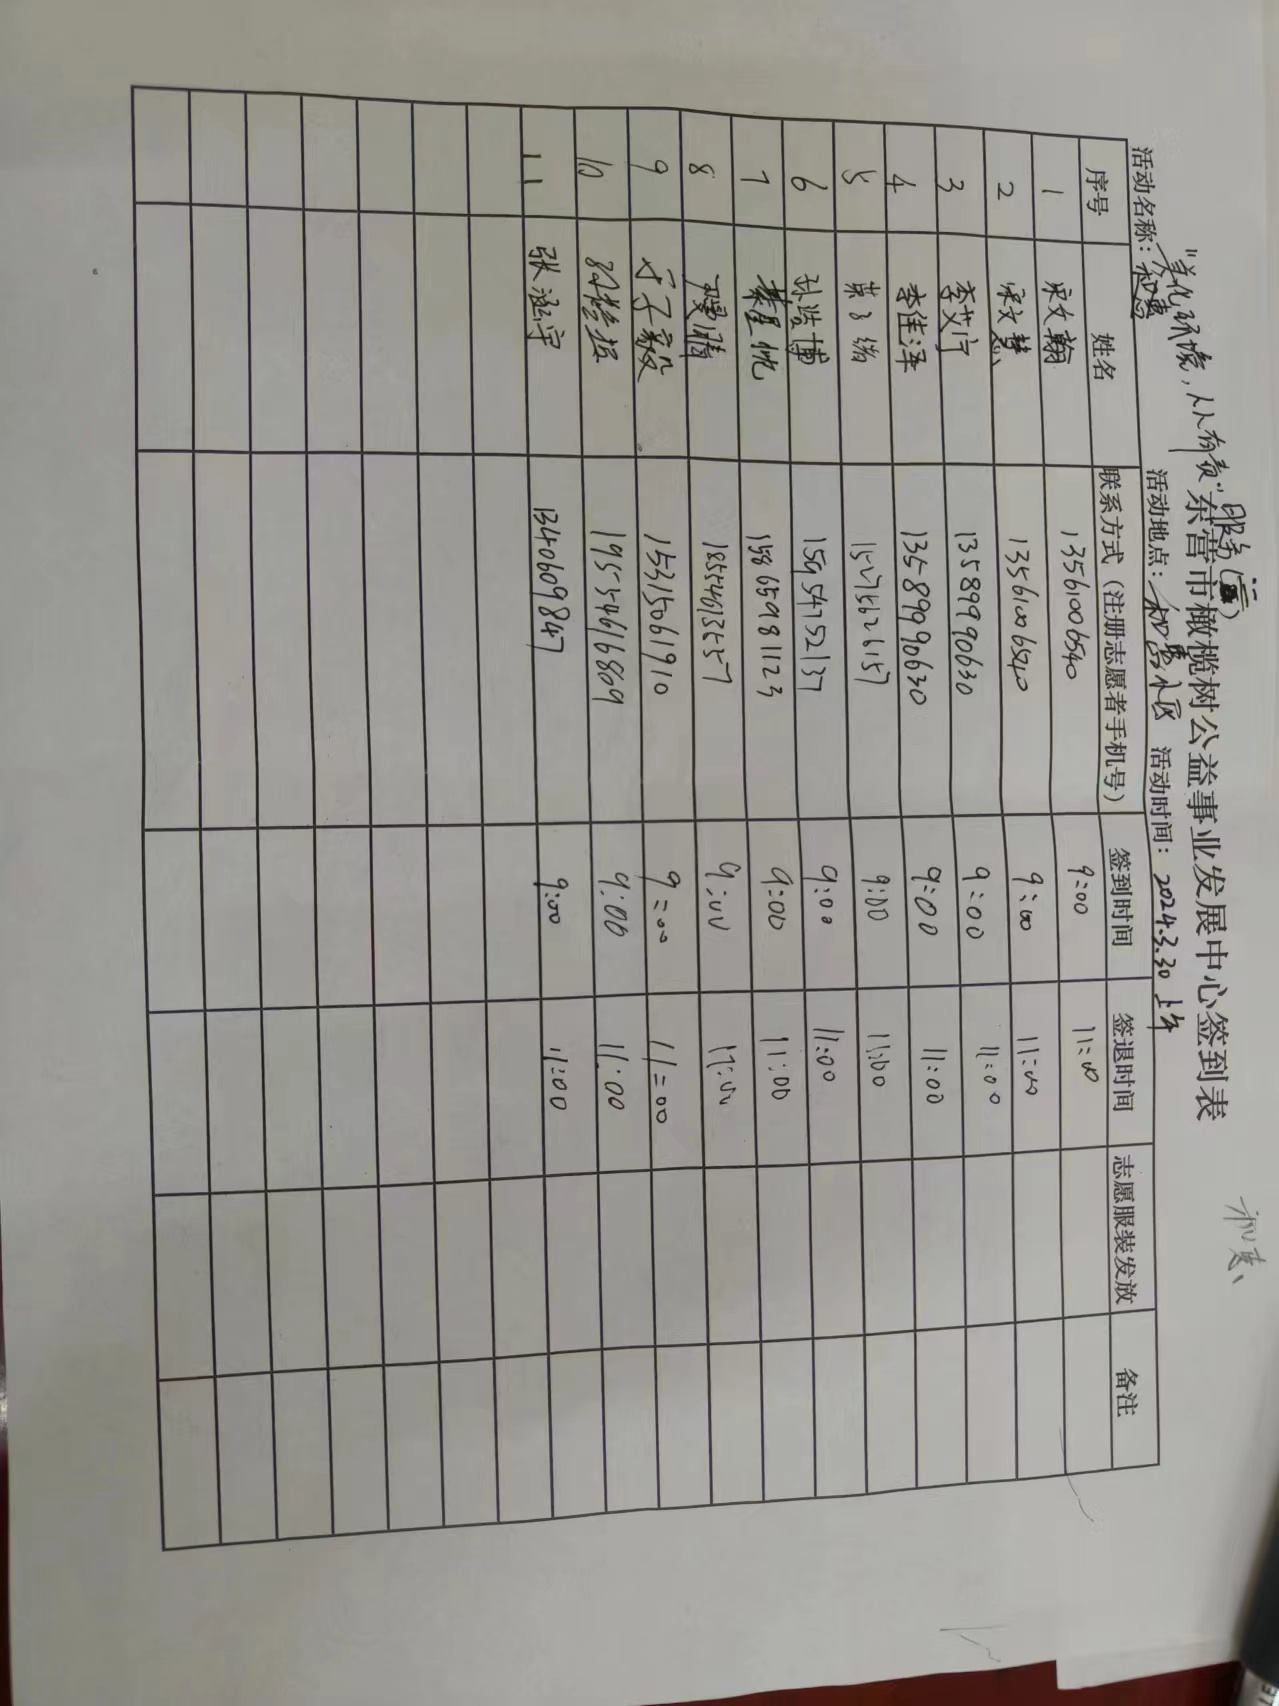 东营市橄榄树公益事业发展中心签到表
"美化环境,人人有责"服务(二)
活动名称: 活动地点: 小区 活动时间: 2024.3.30 上午
序号 姓名 联系方式(注册志愿者手机号) 签到时间 签退时间 志愿服装发放 备注
1 宋文翰 13561006540 9:00 11:00
2 宋文慧 13561006540 9:00 11:00
3 李艾宁 13589990630 9:00 11:00
4 李佳泽 13589990630 9:00 11:00
5 15275626157 9:00 11:00
6 孙浩博 15954752137 9:00 11:00
7 15865981123 9:00 11:00
8 9:00 11:00
9 于子毅 15315061910 9:00 11:00
10 19554616809 9:00 11:00
11 张涵宇 13406609847 9:00 11:00